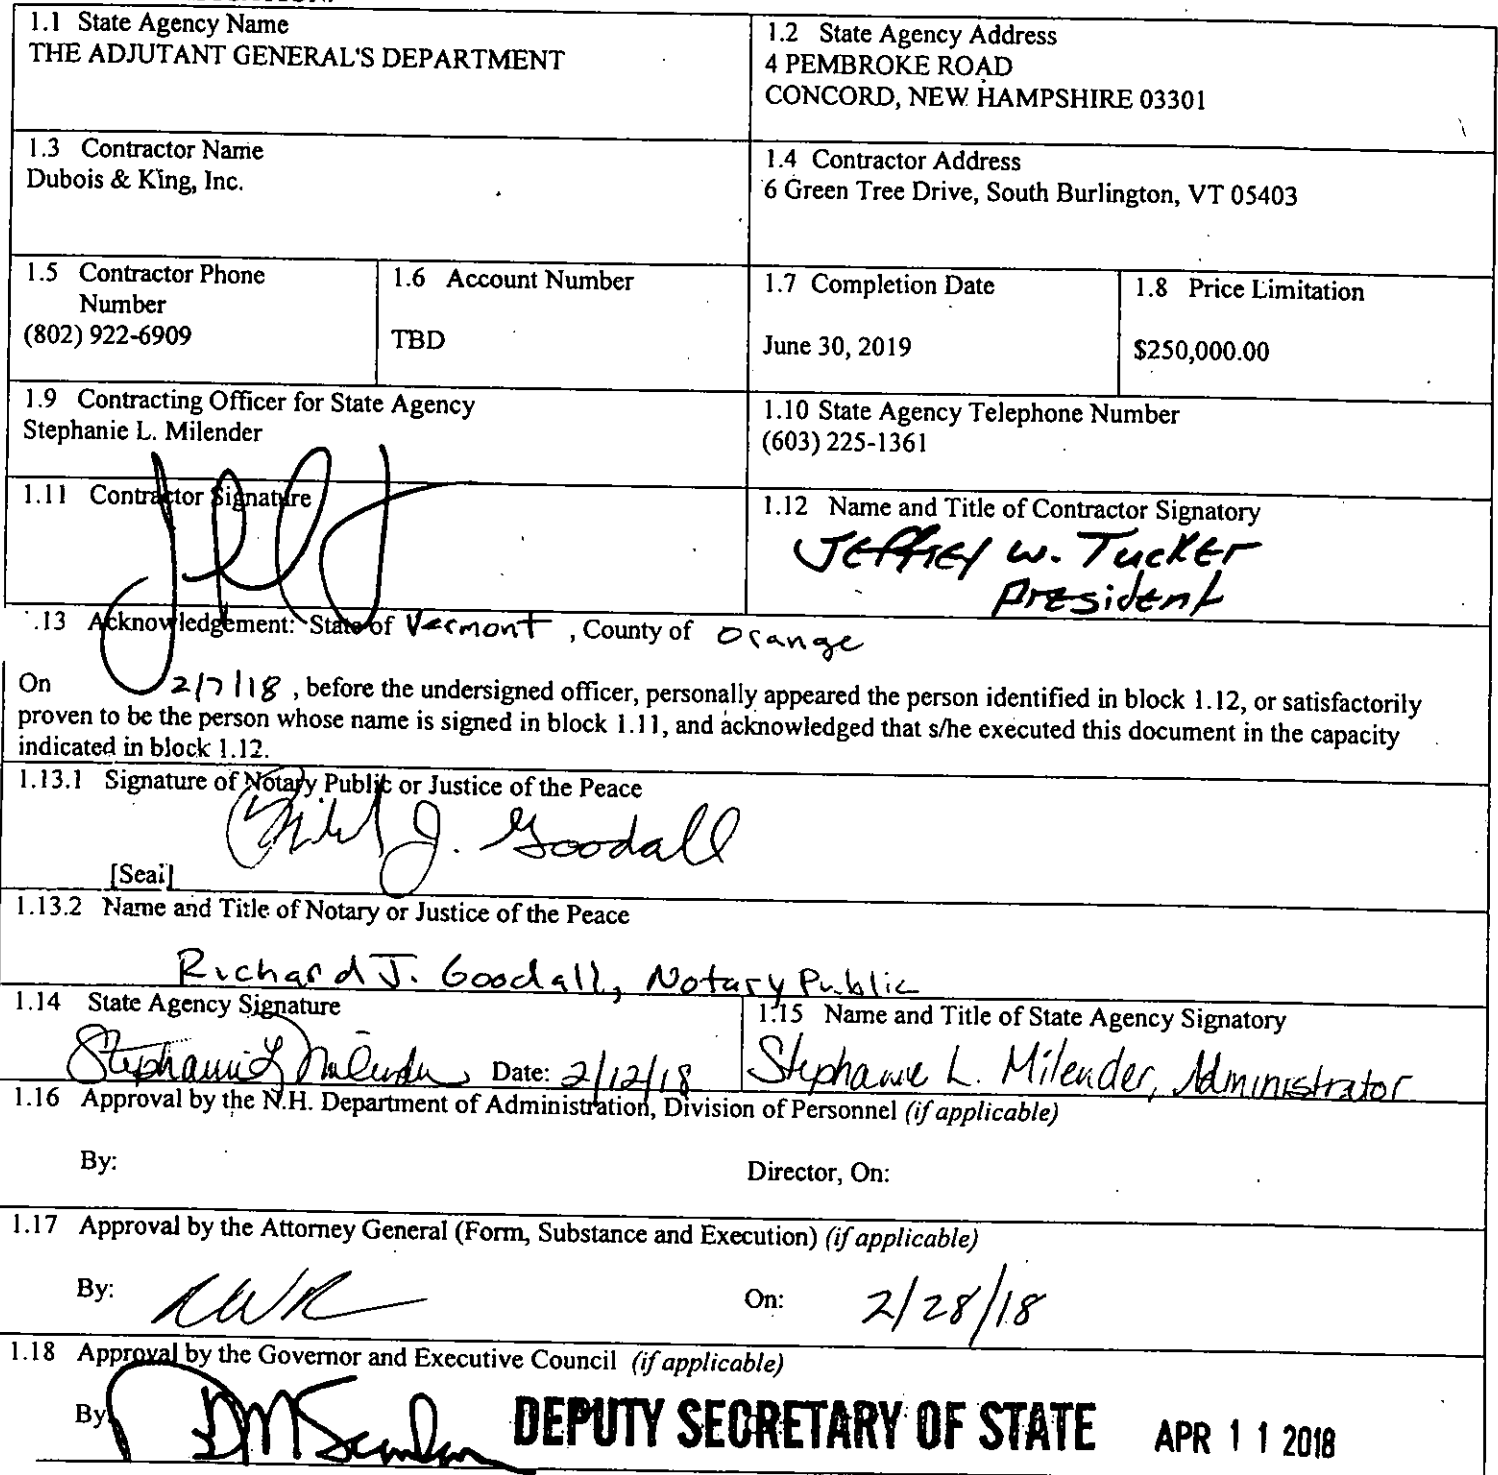 1.1 State Agency Name
THE ADJUTANT GENERAL'S DEPARTMENT
1.2 State Agency Address
4 PEMBROKE ROAD
CONCORD, NEW HAMPSHIRE 03301
1.3 Contractor Name
Dubois & King, Inc.
1.4 Contractor Address
6 Green Tree Drive, South Burlington, VT 05403
1.5 Contractor Phone
Number
(802) 922-6909
1.6 Account Number
TBD
1.7 Completion Date
June 30, 2019
1.8 Price Limitation
$250,000.00
1.9 Contracting Officer for State Agency
Stephanie L. Milender
1.10 State Agency Telephone Number
(603) 225-1361
1.11 Contractor Signature
1.12 Name and Title of Contractor Signatory
Jeffrey W. Tucker
President
.13 Acknowledgement: State of Vermont , County of Orange
On 2/7/18 , before the undersigned officer, personally appeared the person identified in block 1.12, or satisfactorily
proven to be the person whose name is signed in block 1.11, and acknowledged that s/he executed this document in the capacity
indicated in block 1.12.
1.13.1 Signature of Notary Public or Justice of the Peace
J. Goodall
[Seal]
1.13.2 Name and Title of Notary or Justice of the Peace
Richard J. Goodall, Notary Public
1.14 State Agency Signature
Stephanie L Milender Date: 2/12/18
1.15 Name and Title of State Agency Signatory
Stephanie L. Milender, Administrator
1.16 Approval by the N.H. Department of Administration, Division of Personnel (if applicable)
By: Director, On:
1.17 Approval by the Attorney General (Form, Substance and Execution) (if applicable)
By: On: 2/28/18
1.18 Approval by the Governor and Executive Council (if applicable)
By DEPUTY SECRETARY OF STATE APR 11 2018